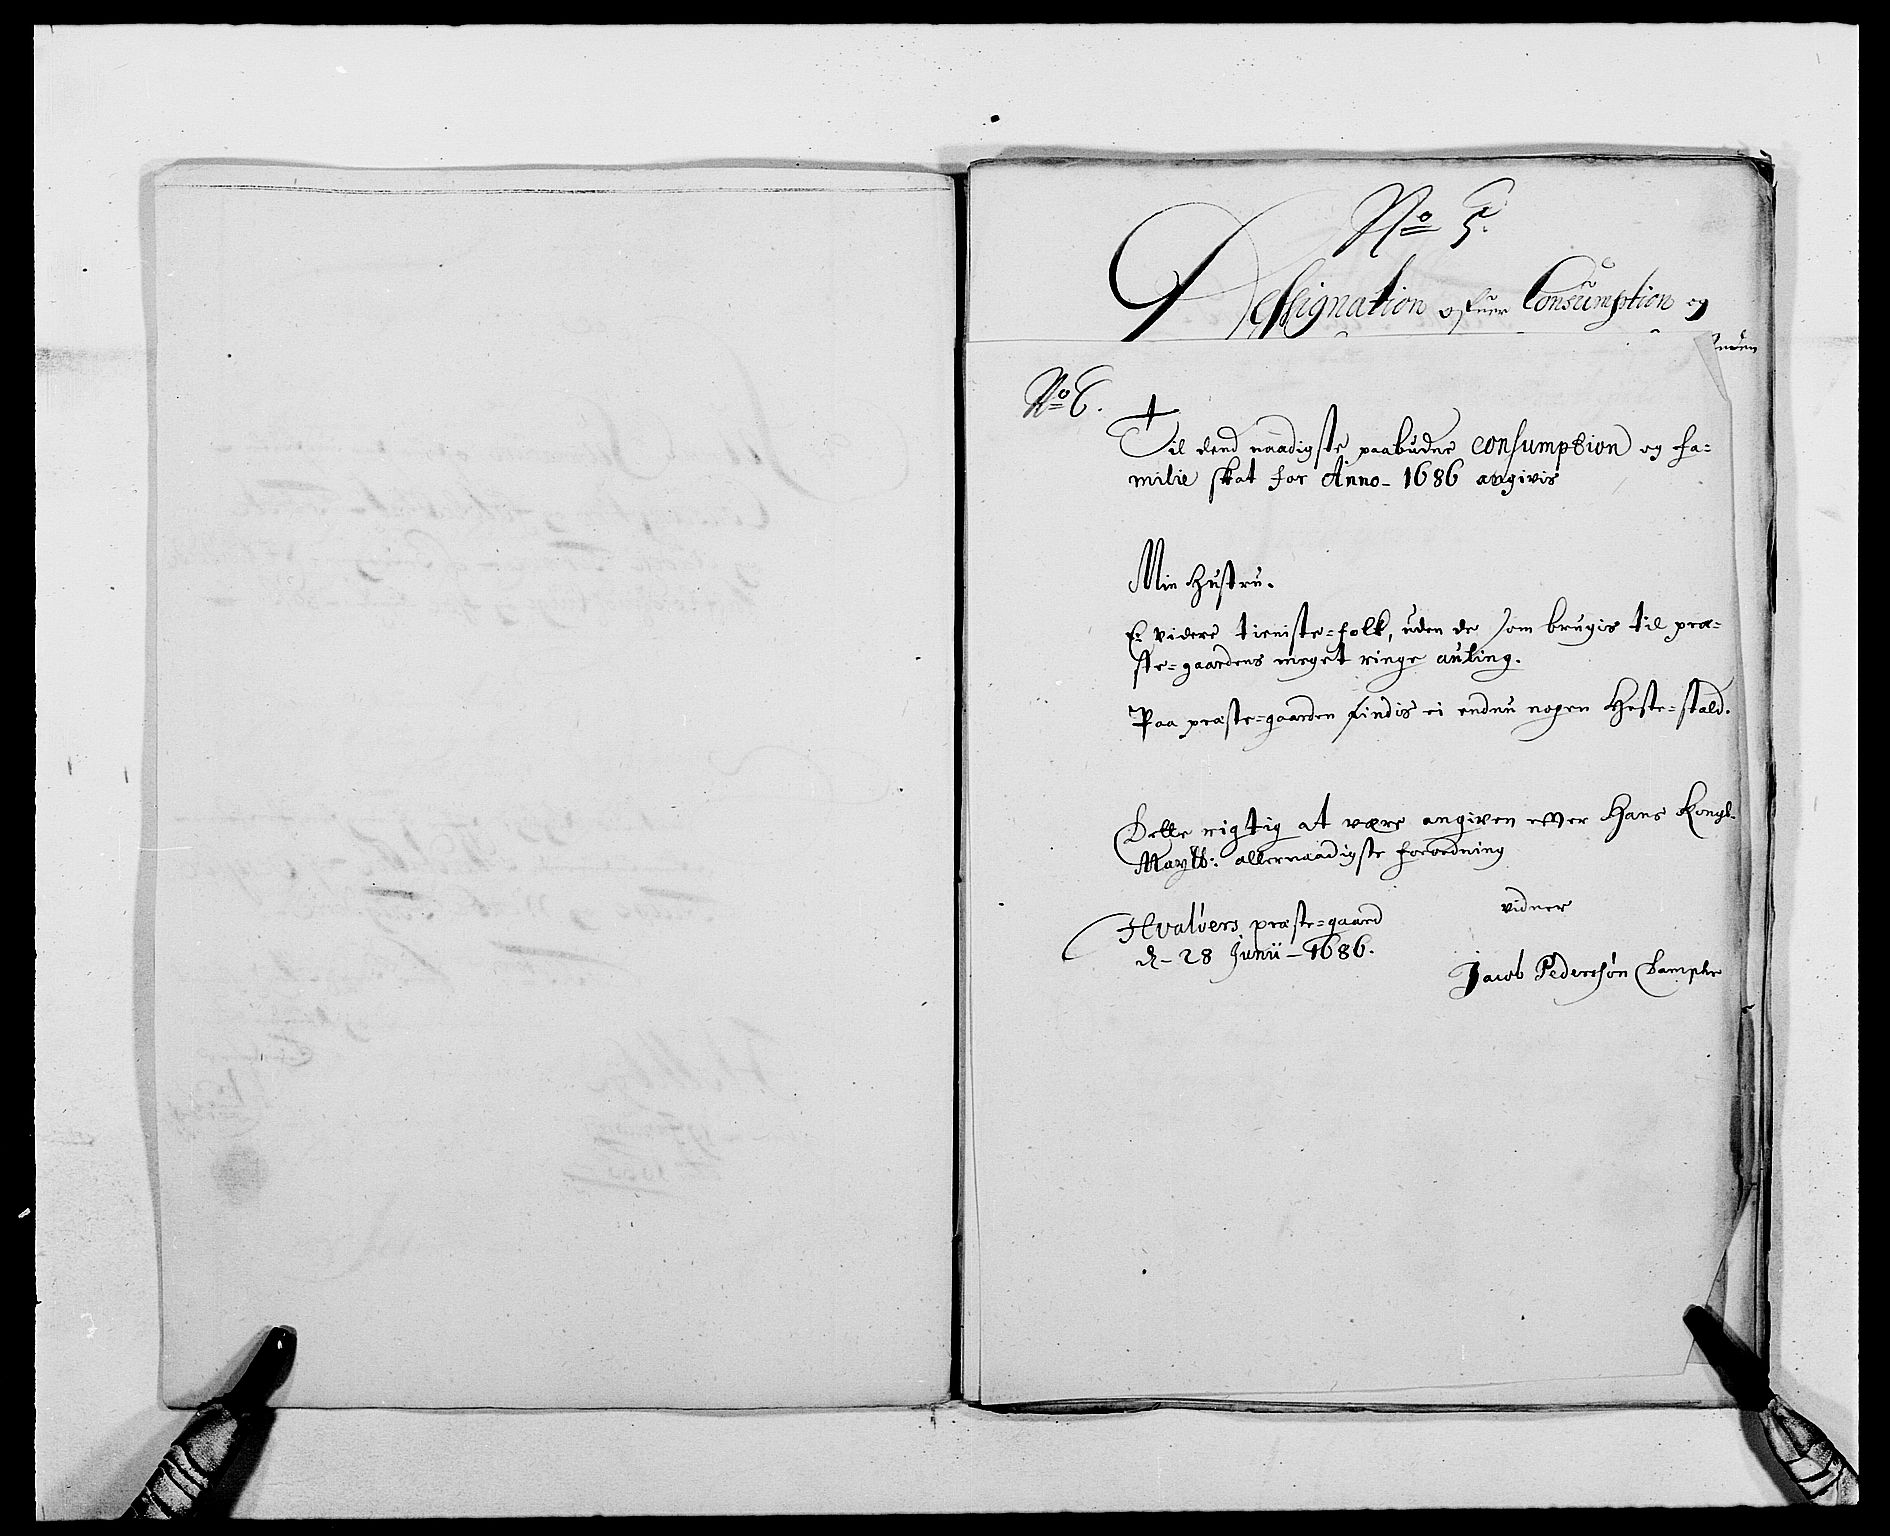 No 5.
Dessignation ofuer Consumption og
No 6.
Til dend naadigste paabudne consumption og fa=
milie skat for Anno - 1686 angivis
Min Hustru.
Ei videre tieniste=folk, uden de som brugis til præ=
ste=gaardens meget ringe auling.
Paa præste=gaarden findis ei endnu nogen Heste=stald.
Dette rigtig at være angiven effter Hans Kongl.
Maytts: allernaadigste forordning
vidner
Hvaløers præste=gaard
d. 28 Junii - 1686.
Jacob Pedersøn